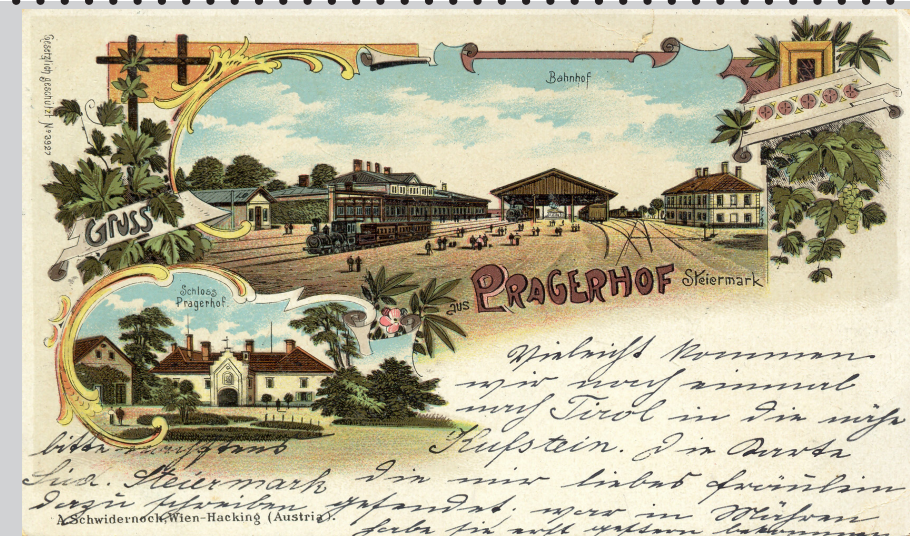 Gesetzlich geschützt No 3927
Bahnhof
Gruss
aus PRAGERHOF Steiermark
Schloss
Pragerhof.
Vieleicht kommen
wir noch einmal
nach Tirol in die nähe
Kufstein. Die Karte
die mir liebes fräulein
gesendet. war in Mähren
habe sie erst gestern bekommen
bitte nächstens
Süd. Steiermark
dazu schreiben
A. Schwidernoch, Wien-Hacking (Austria).